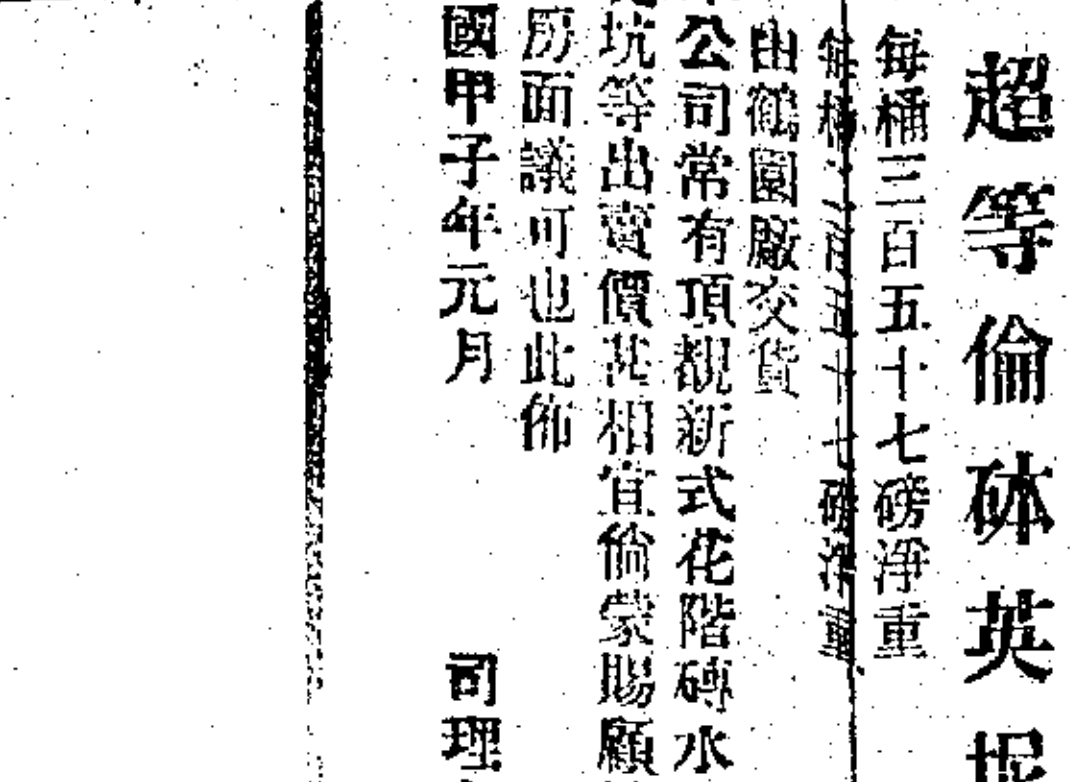 超等倫砵英坭
每桶三百五十七磅淨重
每桶二百五十七磅淨重
由鶴園廠交貨
公司常有頂靚新式花階磚水
坑等出賣價甚相宜倘蒙賜顧
房面議可也此佈
國甲子年元月 司理